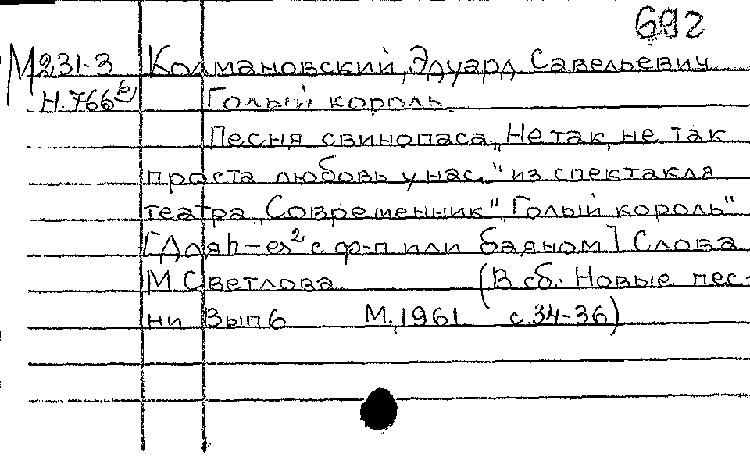 692
М231-3 Колмановский, Эдуард Савельевич
Н.766 Голый король.
Песня свинопаса „Не так, не так
проста любовь у нас." из спектакля
театра „Современник" „Голый король"
[Для с ф-п или баяном] Слова
М. Светлова (В сб.: Новые пес-
ни Вып 6 М., 1961 с. 34-36)